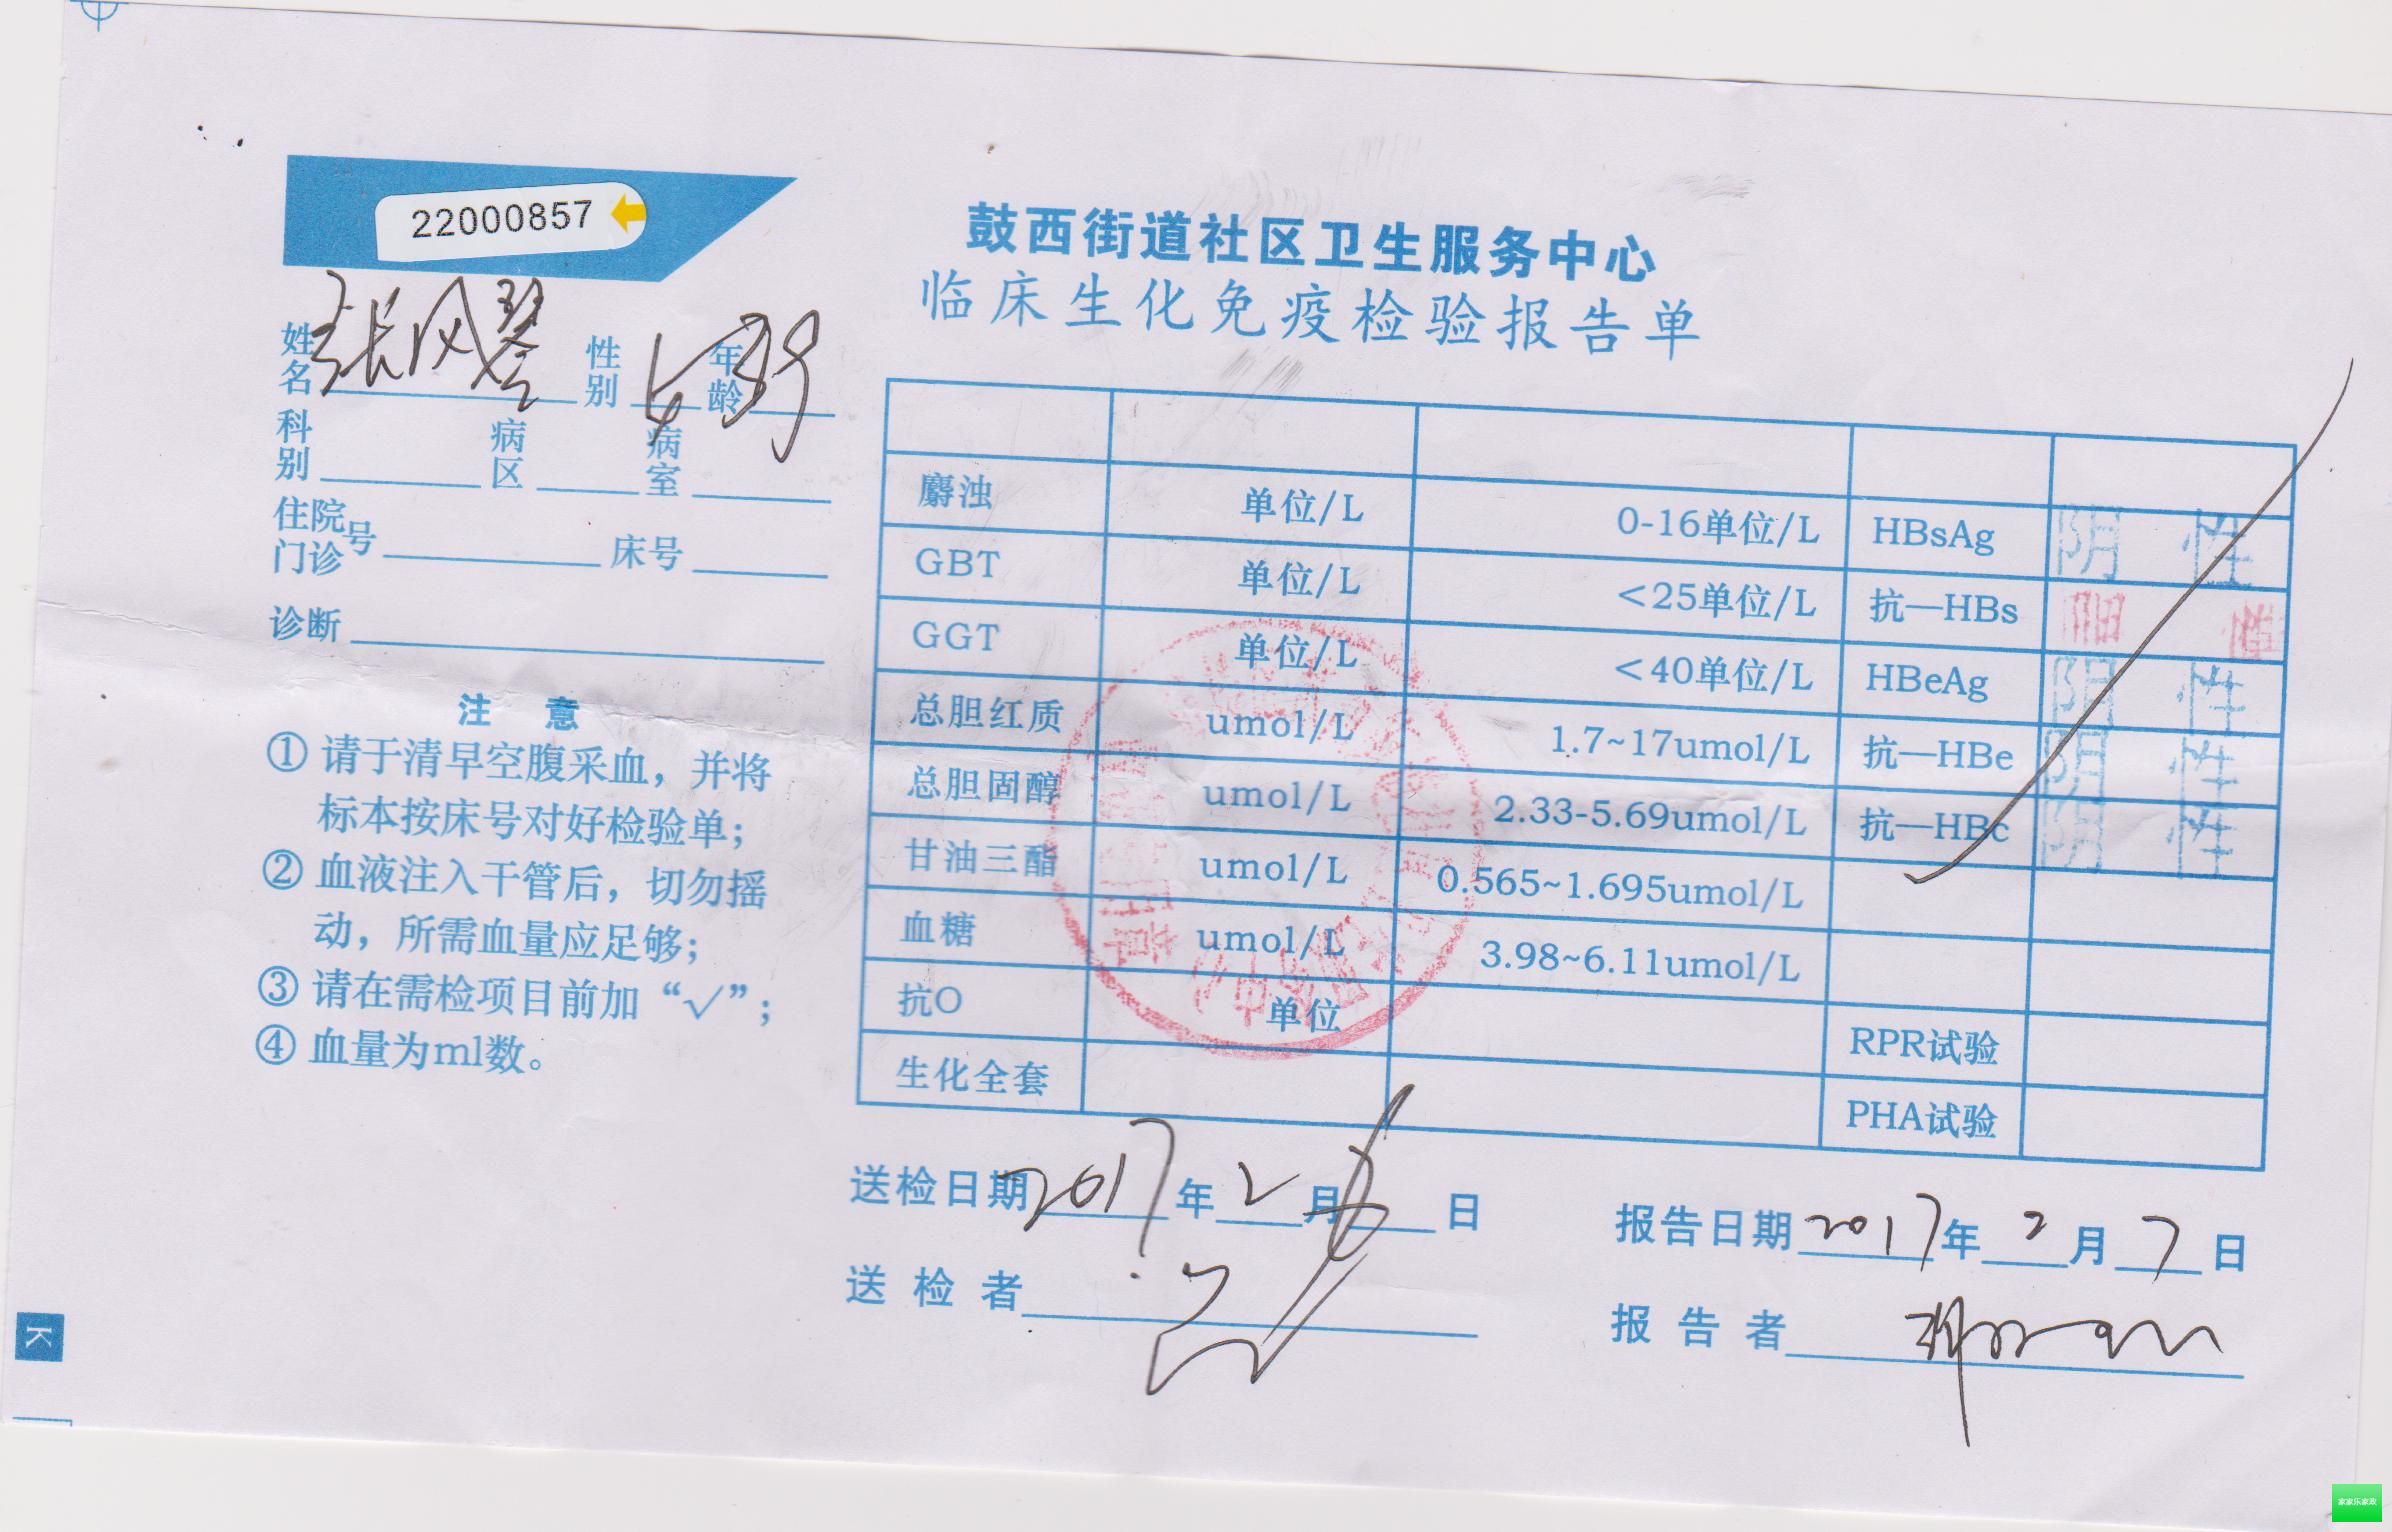 22000857
鼓西街道社区卫生服务中心
临床生化免疫检验报告单
姓名 张凤琴 性别 女 年龄 39
科别 病区 病室
住院门诊号 床号
诊断
注 意
① 请于清早空腹采血，并将
标本按床号对好检验单；
② 血液注入干管后，切勿摇
动，所需血量应足够；
③ 请在需检项目前加“√”；
④ 血量为ml数。
麝浊 单位/L 0-16单位/L HBsAg 阴 性
GBT 单位/L <25单位/L 抗—HBs 阳 性
GGT 单位/L <40单位/L HBeAg 阴 性
总胆红质 umol/L 1.7~17umol/L 抗—HBe 阴 性
总胆固醇 umol/L 2.33-5.69umol/L 抗—HBc 阴 性
甘油三酯 umol/L 0.565~1.695umol/L
血糖 umol/L 3.98~6.11umol/L
抗O 单位 RPR试验
生化全套 PHA试验
送检日期 2017年2月6日 报告日期 2017年2月7日
送 检 者 报 告 者
K
家家乐家政